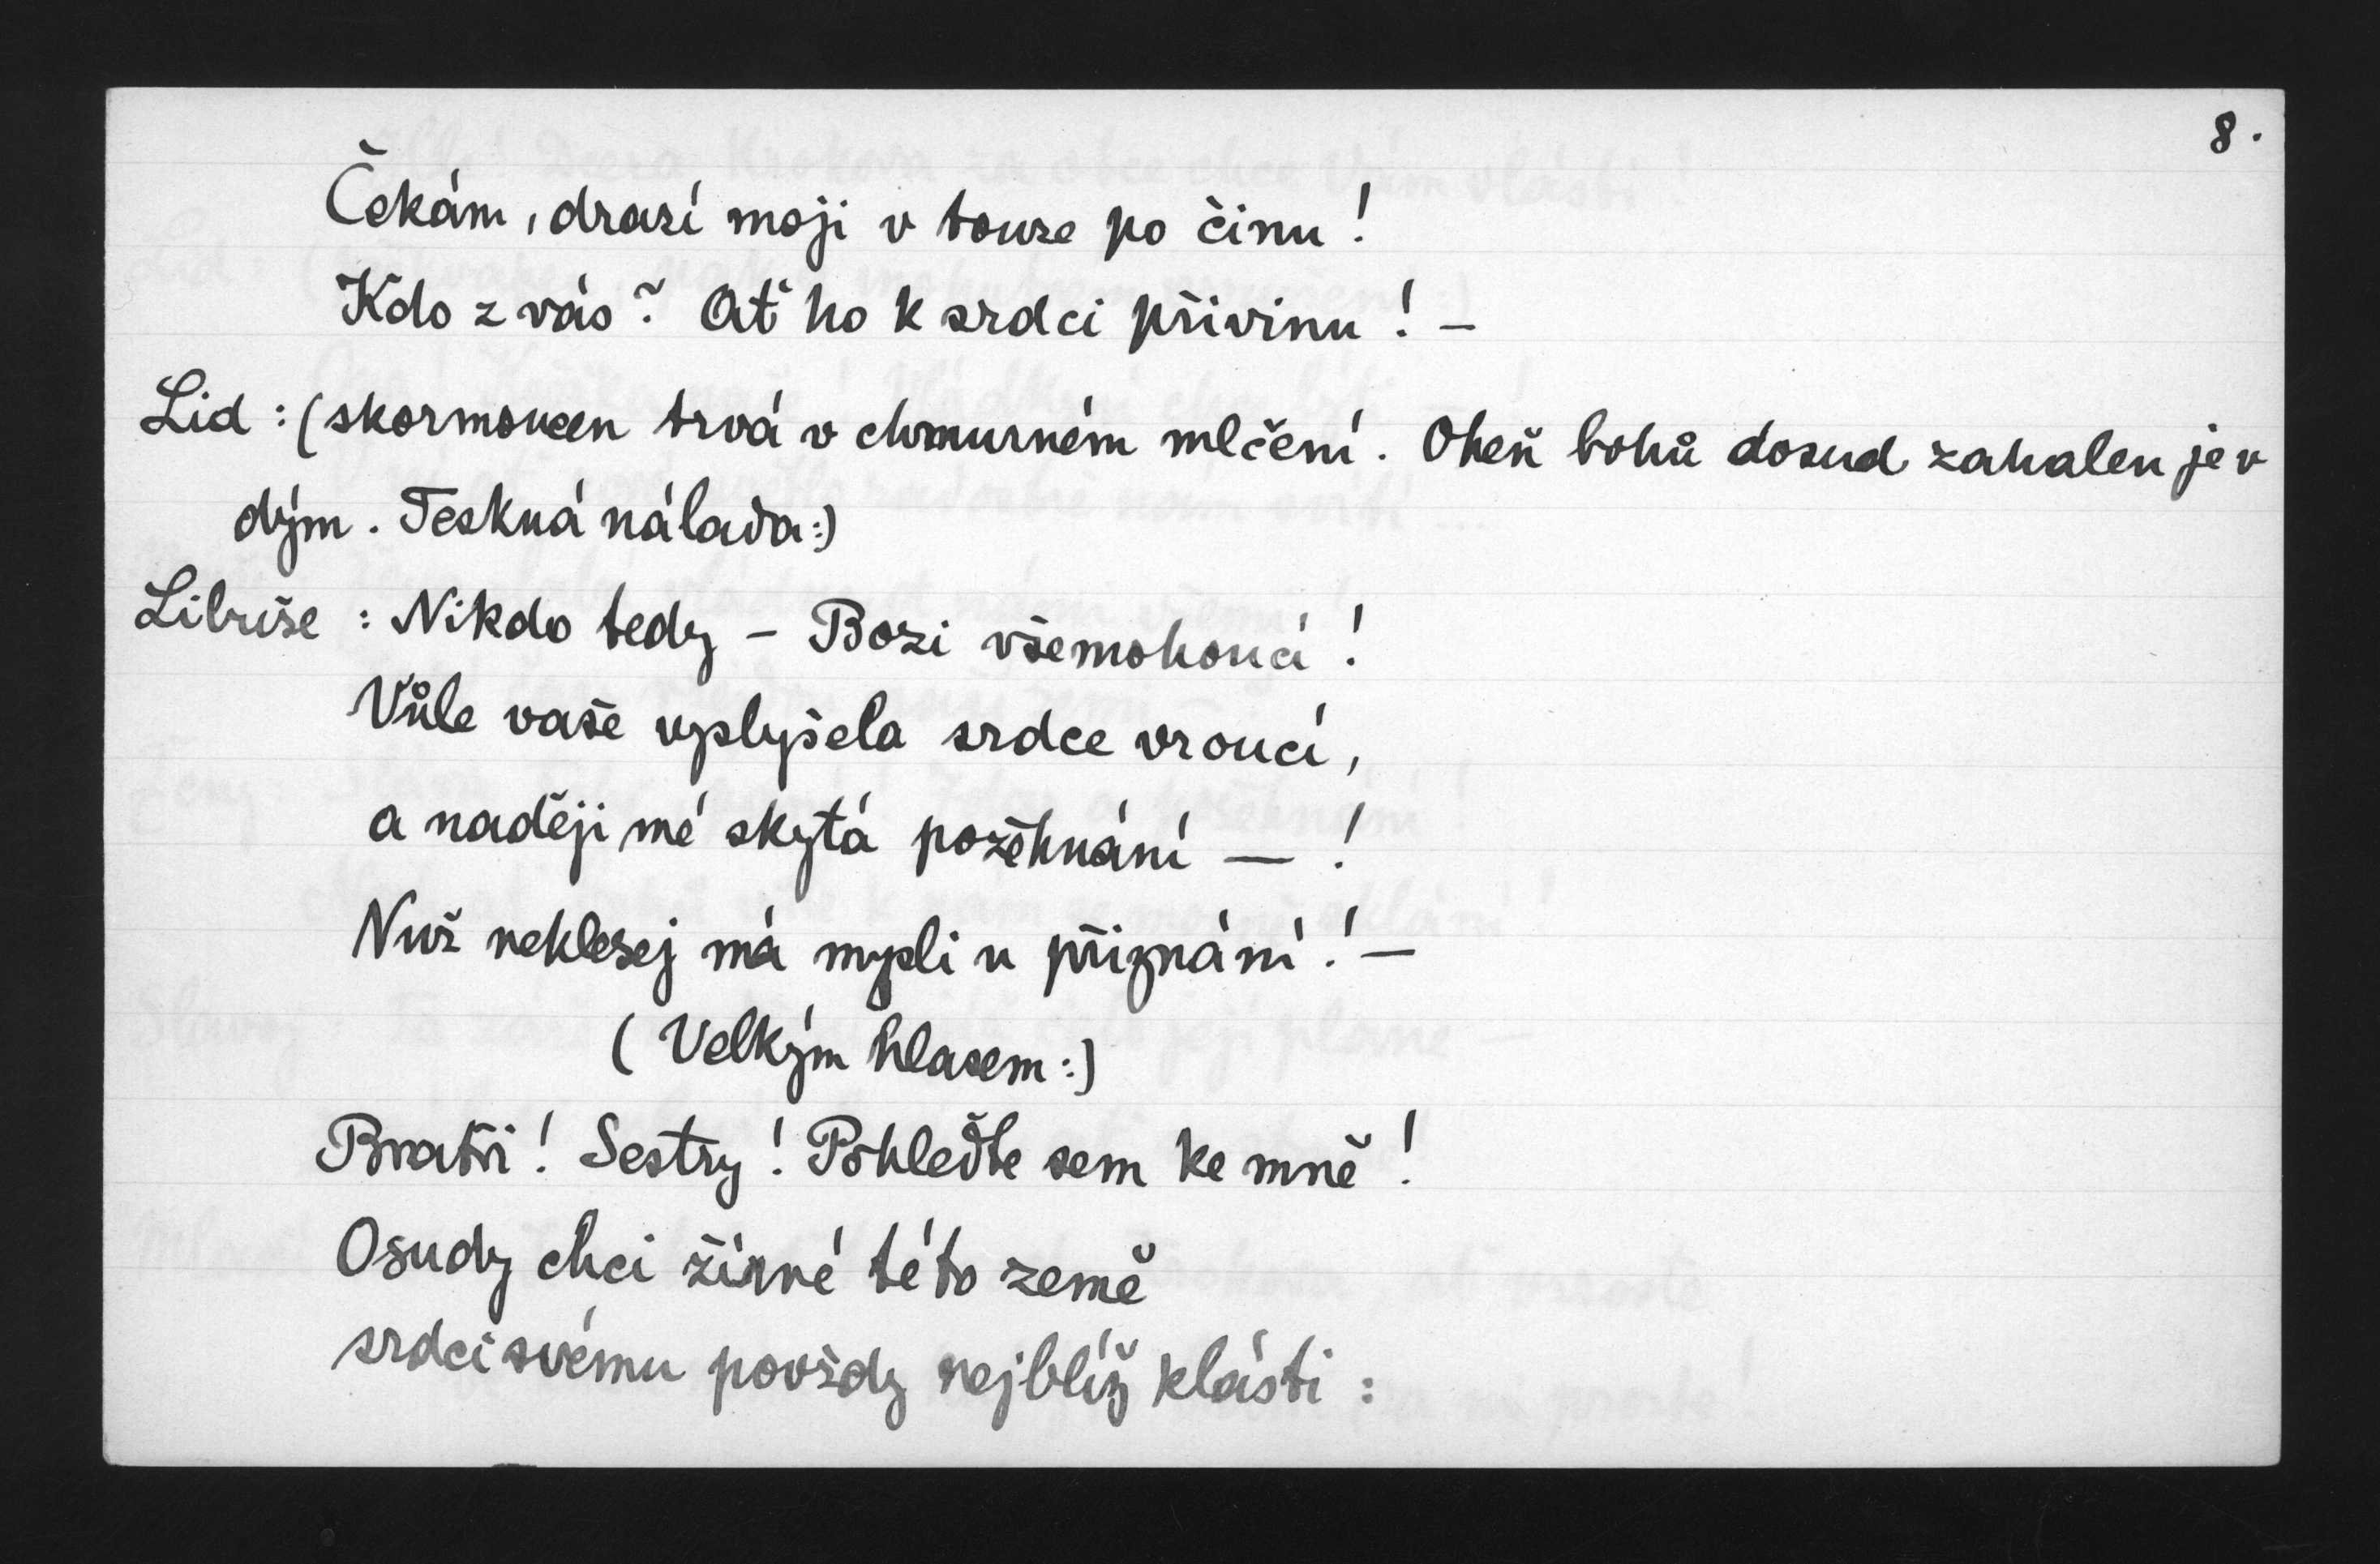 8.
Čekám, drazí moji v touze po činu!
Kdo z vás? Ať ho k srdci přivinu! –
Lid : (skormoucen trvá v chmurném mlčení. Oheň bohů dosud zahalen je v
dým. Teskná nálada:)
Libuše : Nikdo tedy – Bozi všemohoucí!
Vůle vaše vyslyšela srdce vroucí,
a naději mé skytá požehnání — !
Nuž neklesej má mysli u přiznání! –
(Velkým hlasem:)
Bratři! Sestry! Pohleďte sem ke mně!
Osudy chci žírné této země
srdci svému povždy nejblíž klásti :